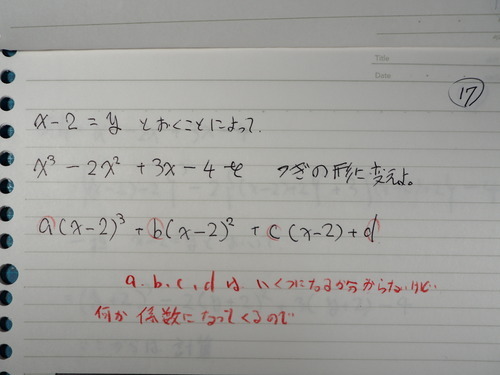 Title
Date
17
x-2=y とおくことによって.
x³-2x²+3x-4を つぎの形に変えよ。
a(x-2)³+b(x-2)²+c(x-2)+d
a.b.c.dは いくつになるか分からないけど..
何か係数になってくるので